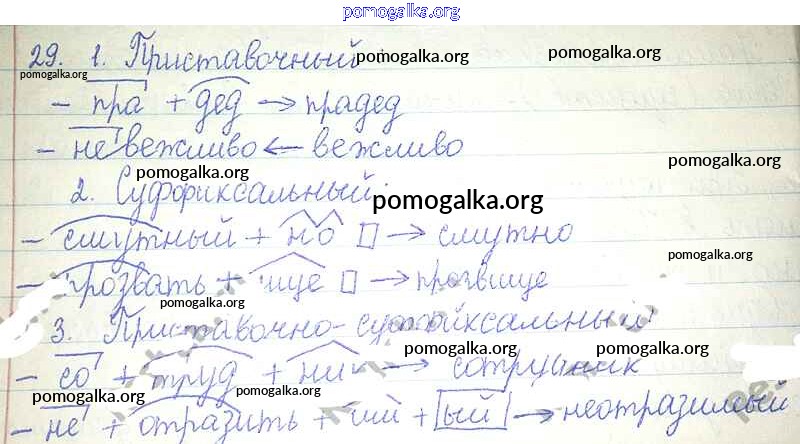 pomogalka.org
29. 1. Приставочный pomogalka.org pomogalka.org
pomogalka.org
- пра + дед → прадед
pomogalka.org pomogalka.org
- невежливо ← вежливо
pomogalka.org pomogalka.org
2. Суффиксальный. pomogalka.org
- смутный + но □ → смутно
pomogalka.org pomogalka.org
- прозвать + ище □ → прозвище
pomogalka.org
3. Приставочно-суффиксальный
pomogalka.org pomogalka.org
- со + труд + ник → сотрудник
pomogalka.org pomogalka.org
- не + отразить + + ый → неотразимый